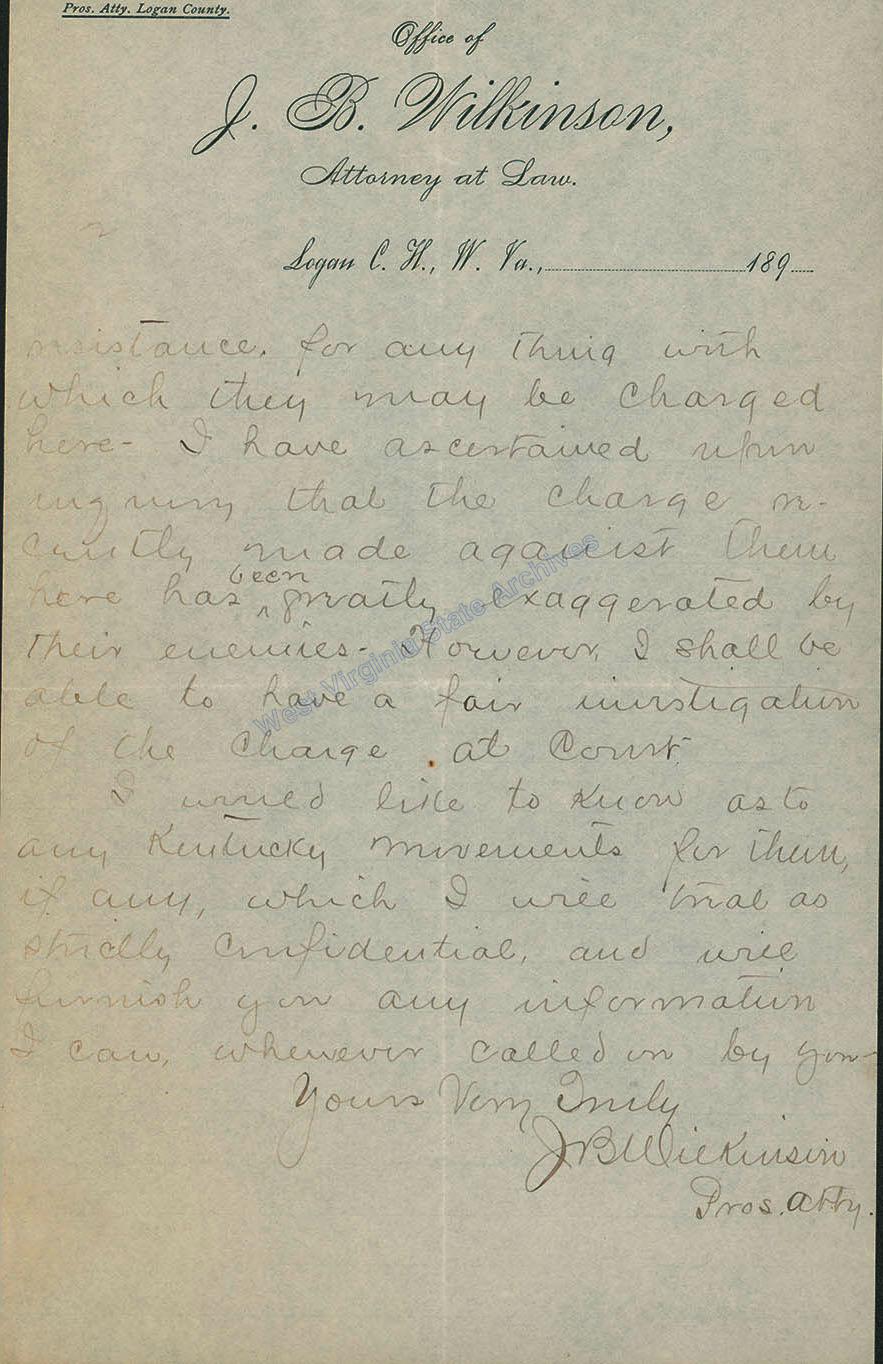 Pros. Atty. Logan County.
Office of
J. B. Wilkinson,
Attorney at Law.
Logan C. H., W. Va., 189
resistance. for any thing with
which they may be charged
here- I have ascertained upon
inquiry that the charge re-
cently made against them
been
here has ^ greatly exaggerated by
their enemies- However, I shall be
able to have a fair investigation
of the charge . at Court.
I would like to know as to
any Kentucky movements for them,
if any, which I will treat as
strictly confidential, and will
furnish you any information
I can, whenever called on by you-
Yours Very Truly
J B Wilkinson
Pros. Atty.
West Virginia State Archives